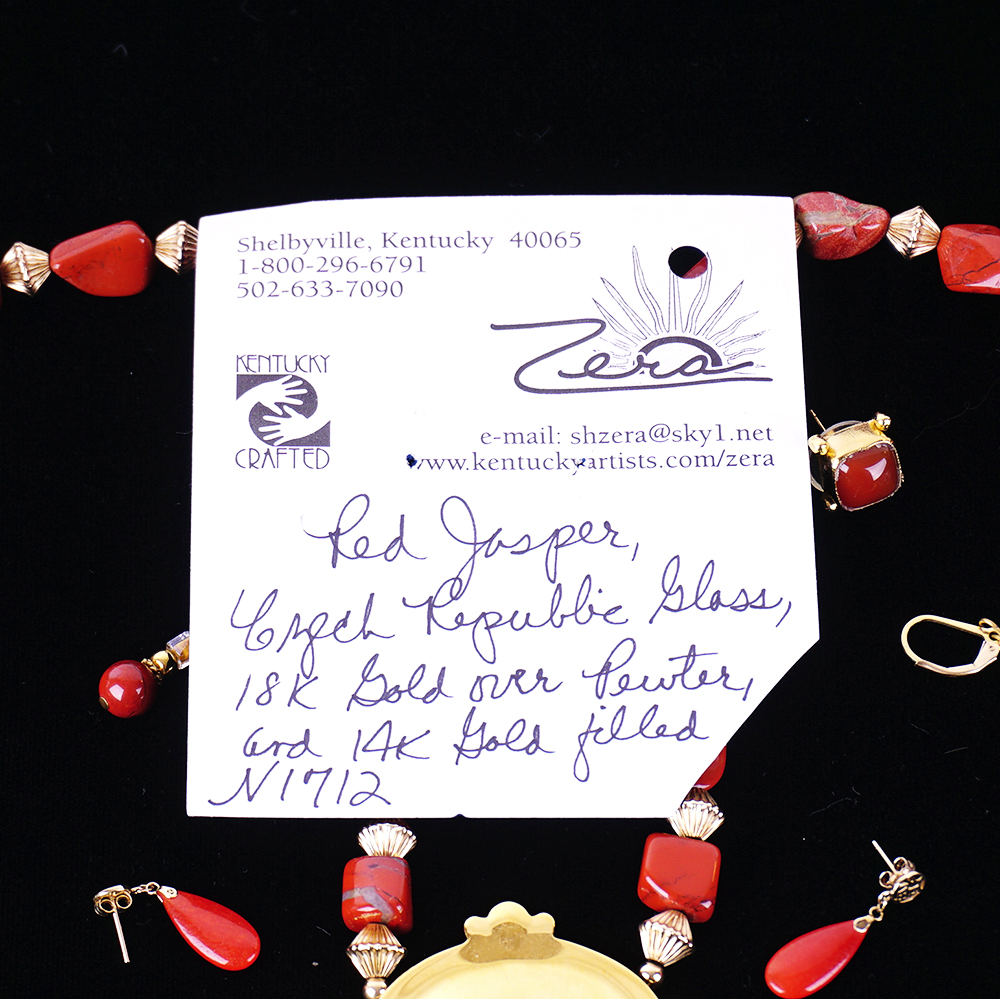 Shelbyville, Kentucky 40065
1-800-296-6791
502-633-7090
Zera
KENTUCKY
CRAFTED
e-mail: shzera@sky1.net
www.kentuckyartists.com/zera
Red Jasper,
Czech Republic Glass,
18K Gold over Pewter,
and 14K Gold filled
N1712